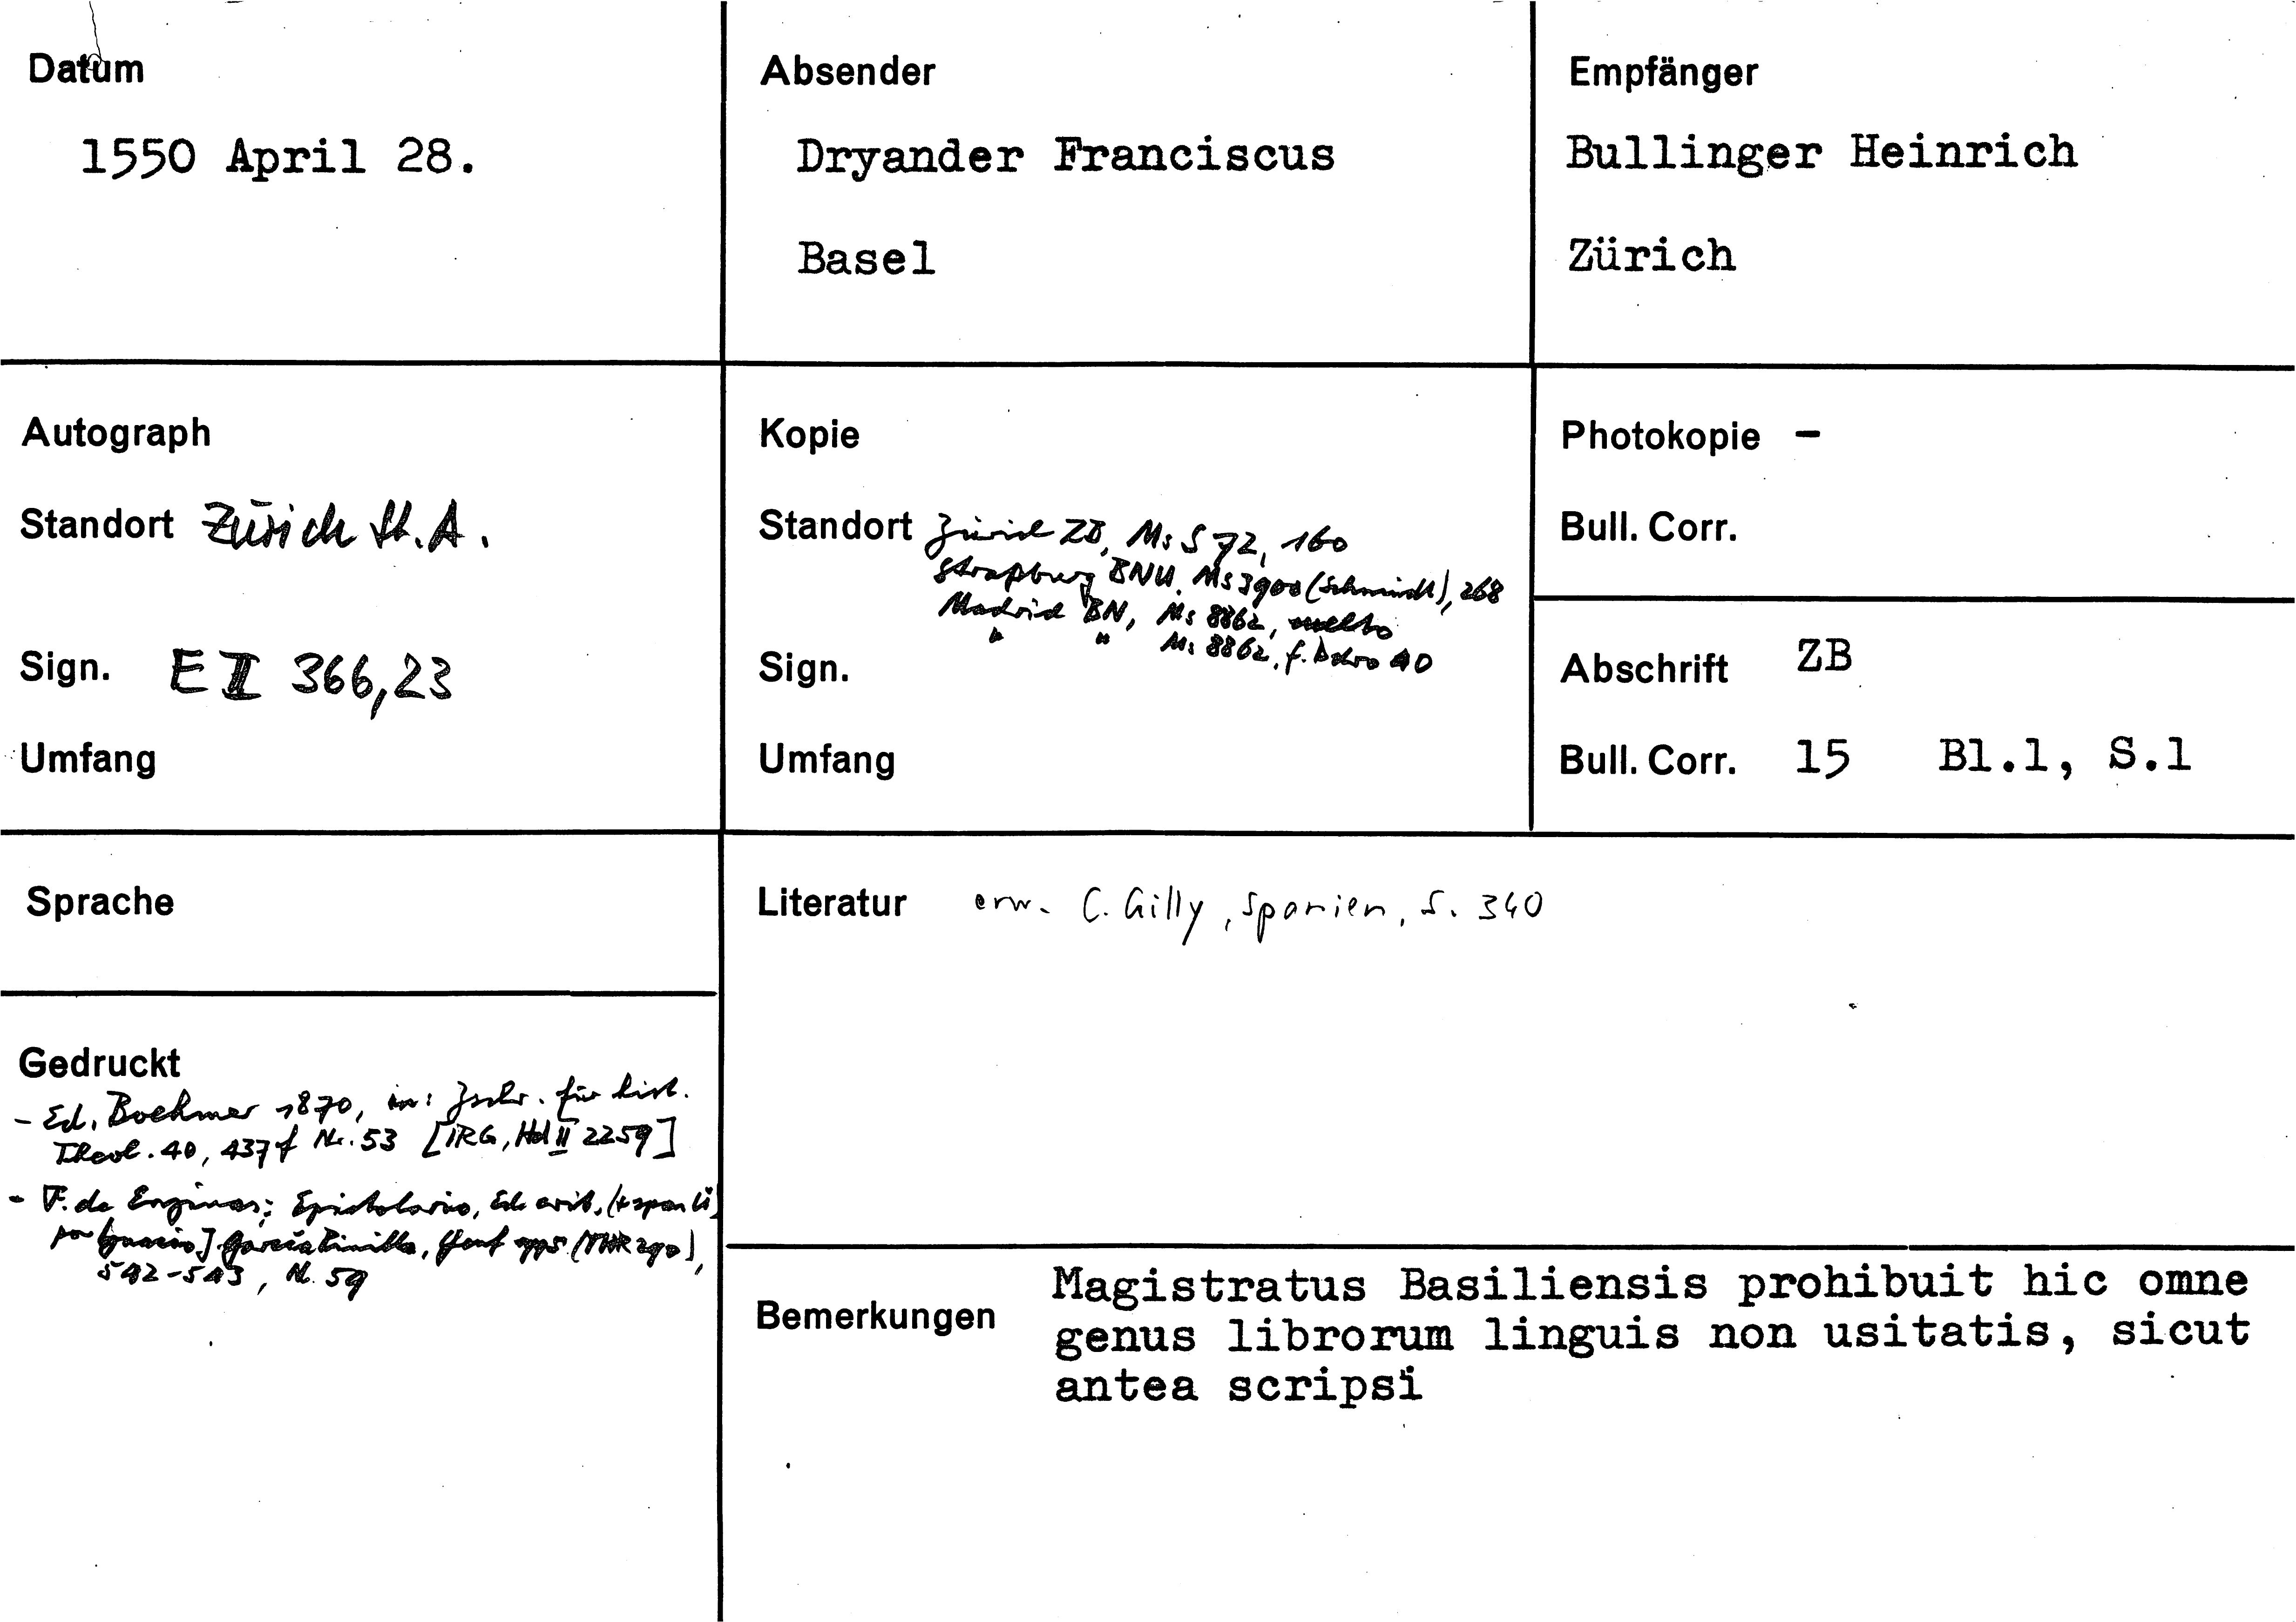 Datum
1550 April 28.
Absender
Dryander Franciscus
Basel
Empfänger
Bullinger Heinrich
Zürich
Autograph
Standort Zürich St. A.
Sign. E II 366,23
Umfang
Kopie
Standort Zürich ZB, Ms S 72, 160
Straßburg BNU, Ms 3900 (Schmidt), 268
Madrid BN, Ms 8862,
" " Ms 8862, f.
Sign.
Umfang
Photokopie -
Bull. Corr.
Abschrift ZB
Bull. Corr. 15 Bl.1, S.1
Sprache
Literatur erw. C. Gilly, Spanien, S. 340
Gedruckt
- Ed. Boehmer 1870, in: Zschr. für hist.
Theol. 40, 437f Nr. 53 [IRG, Hd II 2259]
- F. de Enzinas: Epistolario, Ed. crit.
García Pinilla, Genf 1995 (THR 290),
542-543, Nr. 59
Bemerkungen
Magistratus Basiliensis prohibuit hic omne
genus librorum linguis non usitatis, sicut
antea scripsi